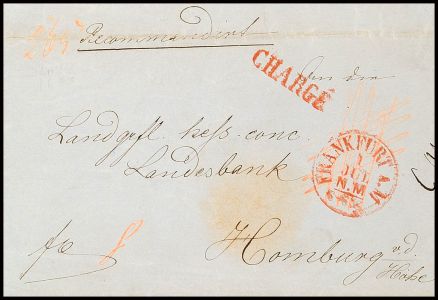 Recommandirt
CHARGÉ
An die
Landgfl. hess. conc.
Landesbank
FRANKFURT A.M.
1
JUL
N.M
Homburg v. d.
Höhe